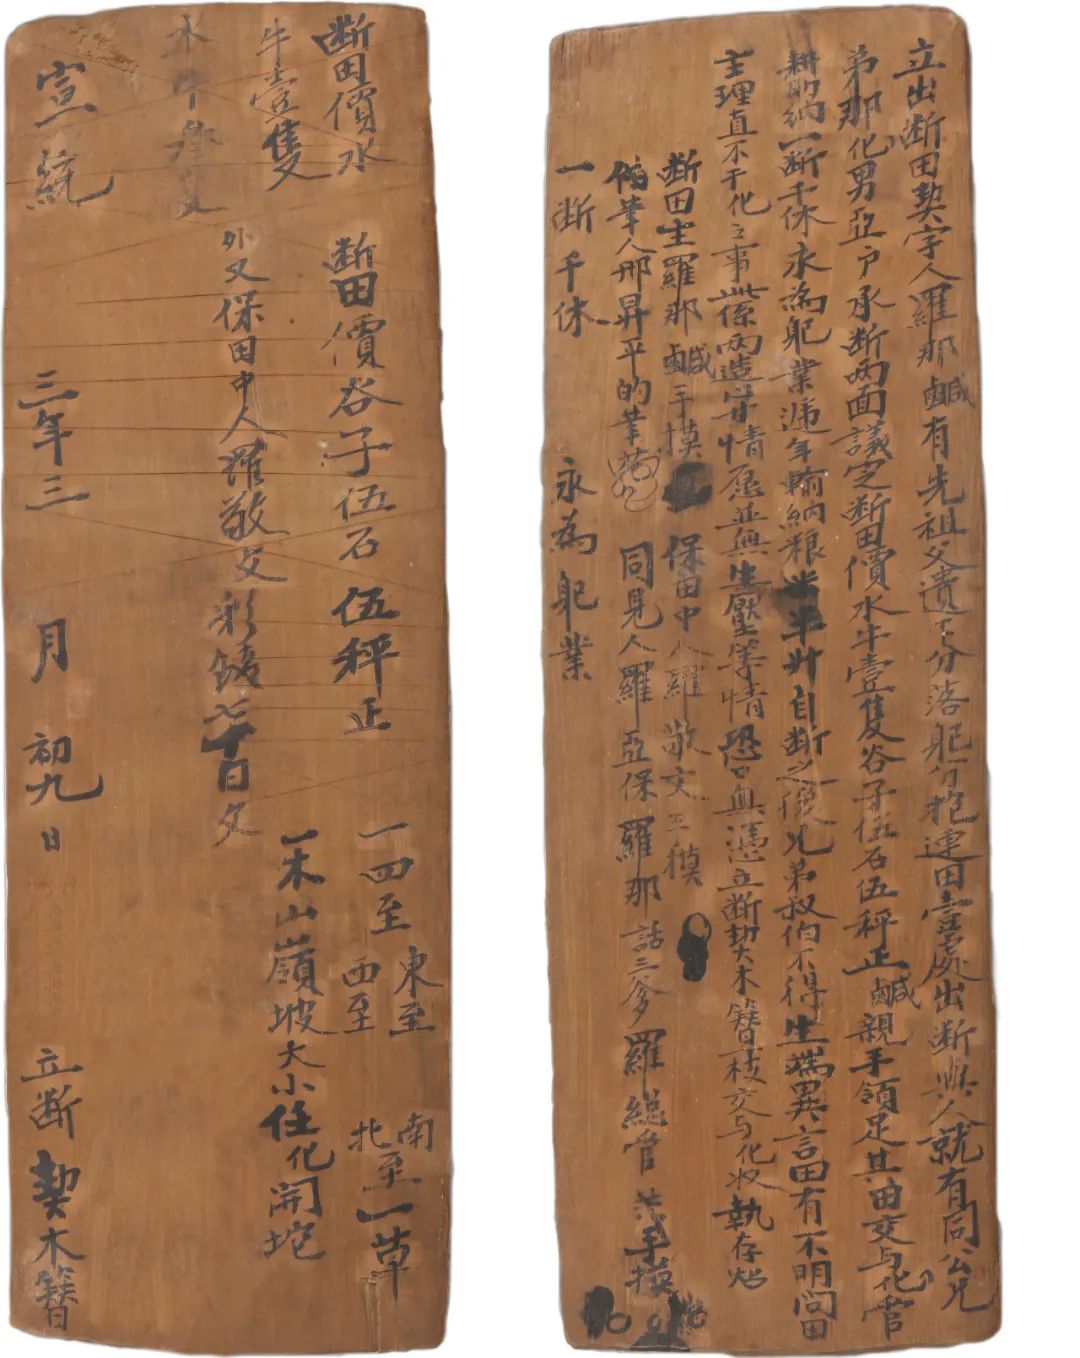 立出断田契字人羅那鹹有先祖父遺下分落躯分抱連田壹處出断與人就有同公兄
弟那化男亞户承断兩面議定断田價水牛壹隻谷子伍石伍秤正鹹親手領足其田交与化管
耕納一断千休永為躯業遞年輸納粮米半升自断之後兄弟叔伯不得生端異言田有不明問田
主理直不干化之事此係兩造甘情愿並無生壓等情恐口無憑立断契大木簪一枝交与化收執存炤
断田主羅那鹹手摸 保田中人羅敬文手摸
代筆人那昇平的筆 同見人羅亞保羅那話三爹羅総管 手摸
一断千休 永為躯業
断田價水
牛壹隻
断田價谷子伍石伍秤正
一四至東至西至南北至
一草
一木山嶺坡大小任化開挖
外又保田中人羅敬文彩錢七百文
宣統三年三月初九日 立断契木簪